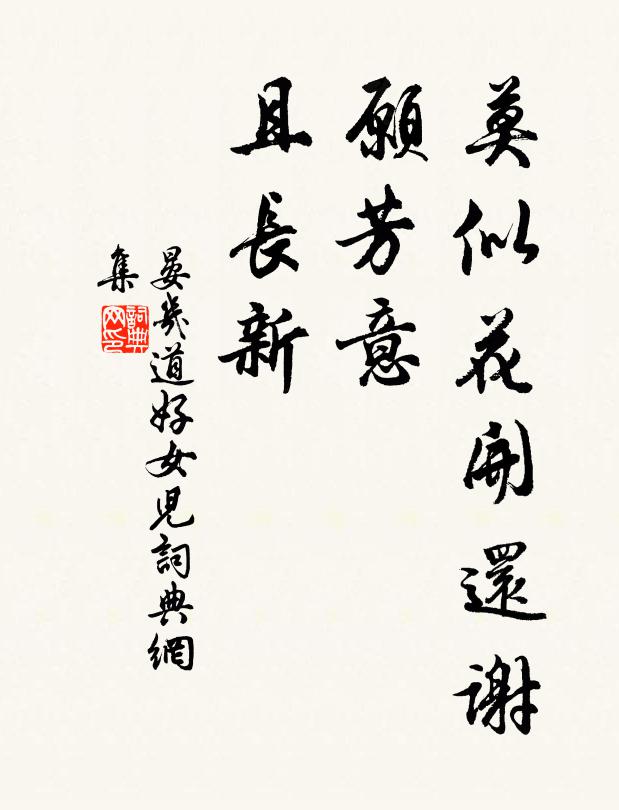 莫似花開還謝
願芳意
且長新
晏幾道好女兒詞典網
集
詞典
网印